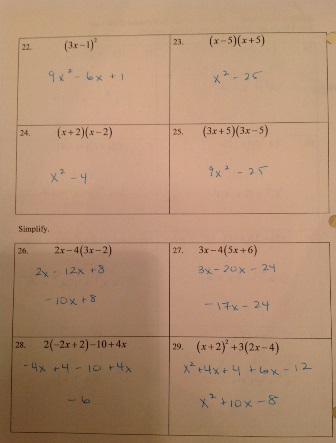 22. (3x−1)²
9x² − 6x + 1
23. (x−5)(x+5)
x² − 25
24. (x+2)(x−2)
x² − 4
25. (3x+5)(3x−5)
9x² − 25
Simplify.
26. 2x−4(3x−2)
2x − 12x + 8
−10x + 8
27. 3x−4(5x+6)
3x − 20x − 24
−17x − 24
28. 2(−2x+2)−10+4x
−4x + 4 − 10 + 4x
−6
29. (x+2)²+3(2x−4)
x² + 4x + 4 + 6x − 12
x² + 10x − 8